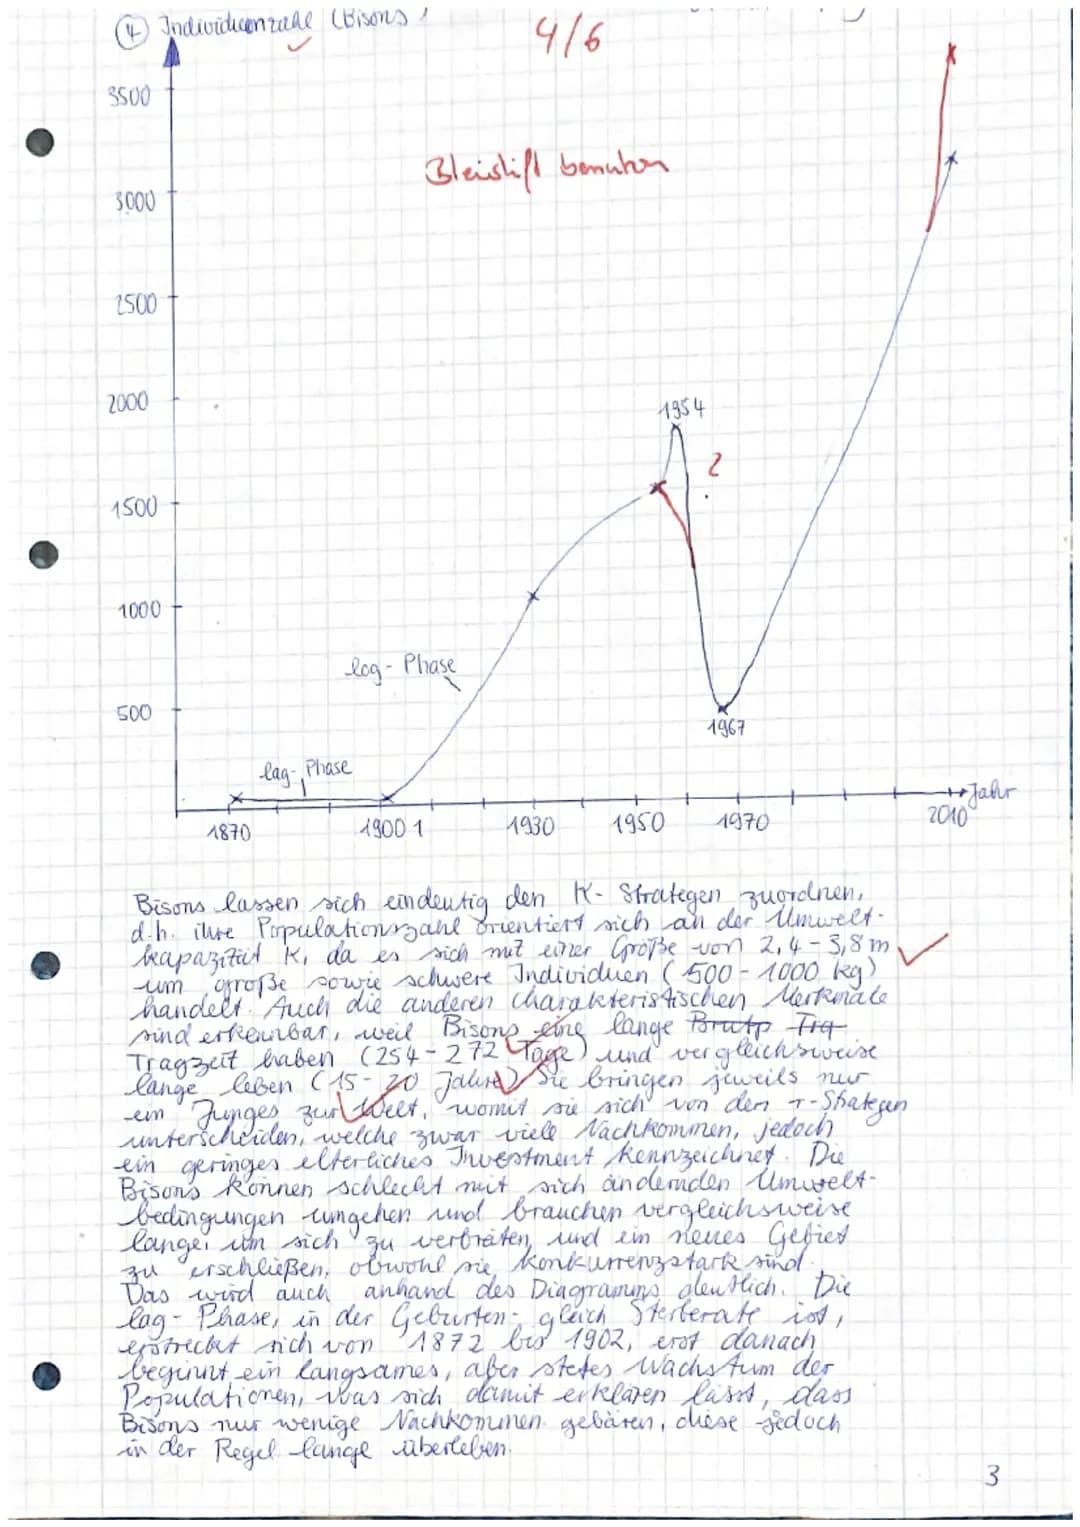 4 Individuenzahl (Bisons)
4/6
3500
Bleistift benutzen
3000
2500
2000
1954
?
1500
1000
log-Phase
500
1967
lag-Phase
Jahr
1870 1900 1 1930 1950 1970 2010
Bisons lassen sich eindeutig den K-Strategen zuordnen,
d.h. ihre Populationszahl orientiert sich an der Umwelt-
kapazität K, da es sich mit einer Größe von 2,4-3,8m
um große sowie schwere Individuen (500-1000 kg)
handelt. Auch die anderen charakteristischen Merkmale
sind erkennbar, weil Bisons eine lange Brutp Tra
Tragzeit haben (254-272 Tage) und vergleichsweise
lange leben (15-20 Jahre). Sie bringen jeweils nur
ein Junges zur Welt, womit sie sich von den r-Strategen
unterscheiden, welche zwar viele Nachkommen, jedoch
ein geringes elterliches Investment kennzeichnet. Die
Bisons können schlecht mit sich ändernden Umwelt-
bedingungen umgehen und brauchen vergleichsweise
lange, um sich zu verbreiten und ein neues Gebiet
zu erschließen, obwohl sie konkurrenzstark sind.
Das wird auch anhand des Diagramms deutlich. Die
lag-Phase, in der Geburten- gleich Sterberate ist,
erstreckt sich von 1872 bis 1902, erst danach
beginnt ein langsames, aber stetes Wachstum der
Populationen, was sich damit erklären lässt, dass
Bisons nur wenige Nachkommen gebären, diese jedoch
in der Regel lange überleben.
3